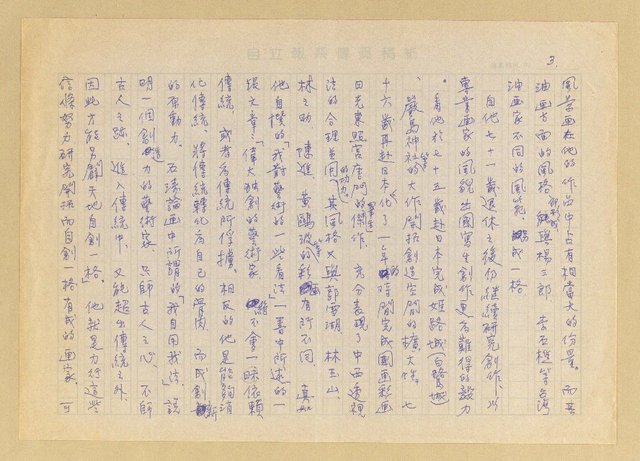 3.
風景画在他的作品中占有相當大的份量。而其
油画方面的風格 就與楊三郎 李石樵等台灣
油画家不同的風範 成一格
自他七十一歲退休之後仍繼續研究創作、以
專業画家的風貌出國寫生創作更有難得的毅力
。看他於七十五歲赴日本完成姬路城(白鷺城)
、嚴島神社的大作開拓創造空間的擴大性。七
十六歲再赴日本化了一年時間完成國画彩画
日光東照宮唐門的傑作、充分表現了中西透視
法的合理並用的功力 其風格又與郭雪湖、林玉山、
林之助 陳進 黃鷗波的彩 有所不同 真如
他自撰的「我對藝術的一些看法」一書中所述的一
段文章:「偉大独創的藝術家 不會一味依賴
傳統、或者為傳統所俘擄、相反的他是能夠消
化傳統、將傳統轉化為自己的骨肉 而成創新
的原動力。石濤論画中所謂的「我自用我法」説
明一個創造力的藝術家 只師古人之心、不師
古人之跡。進入傳統中、又能超出傳統之外、
因此才能另闢天地自創一格」。他就是力行這些
信條努力研究開拓而自創一格有成的画家、可